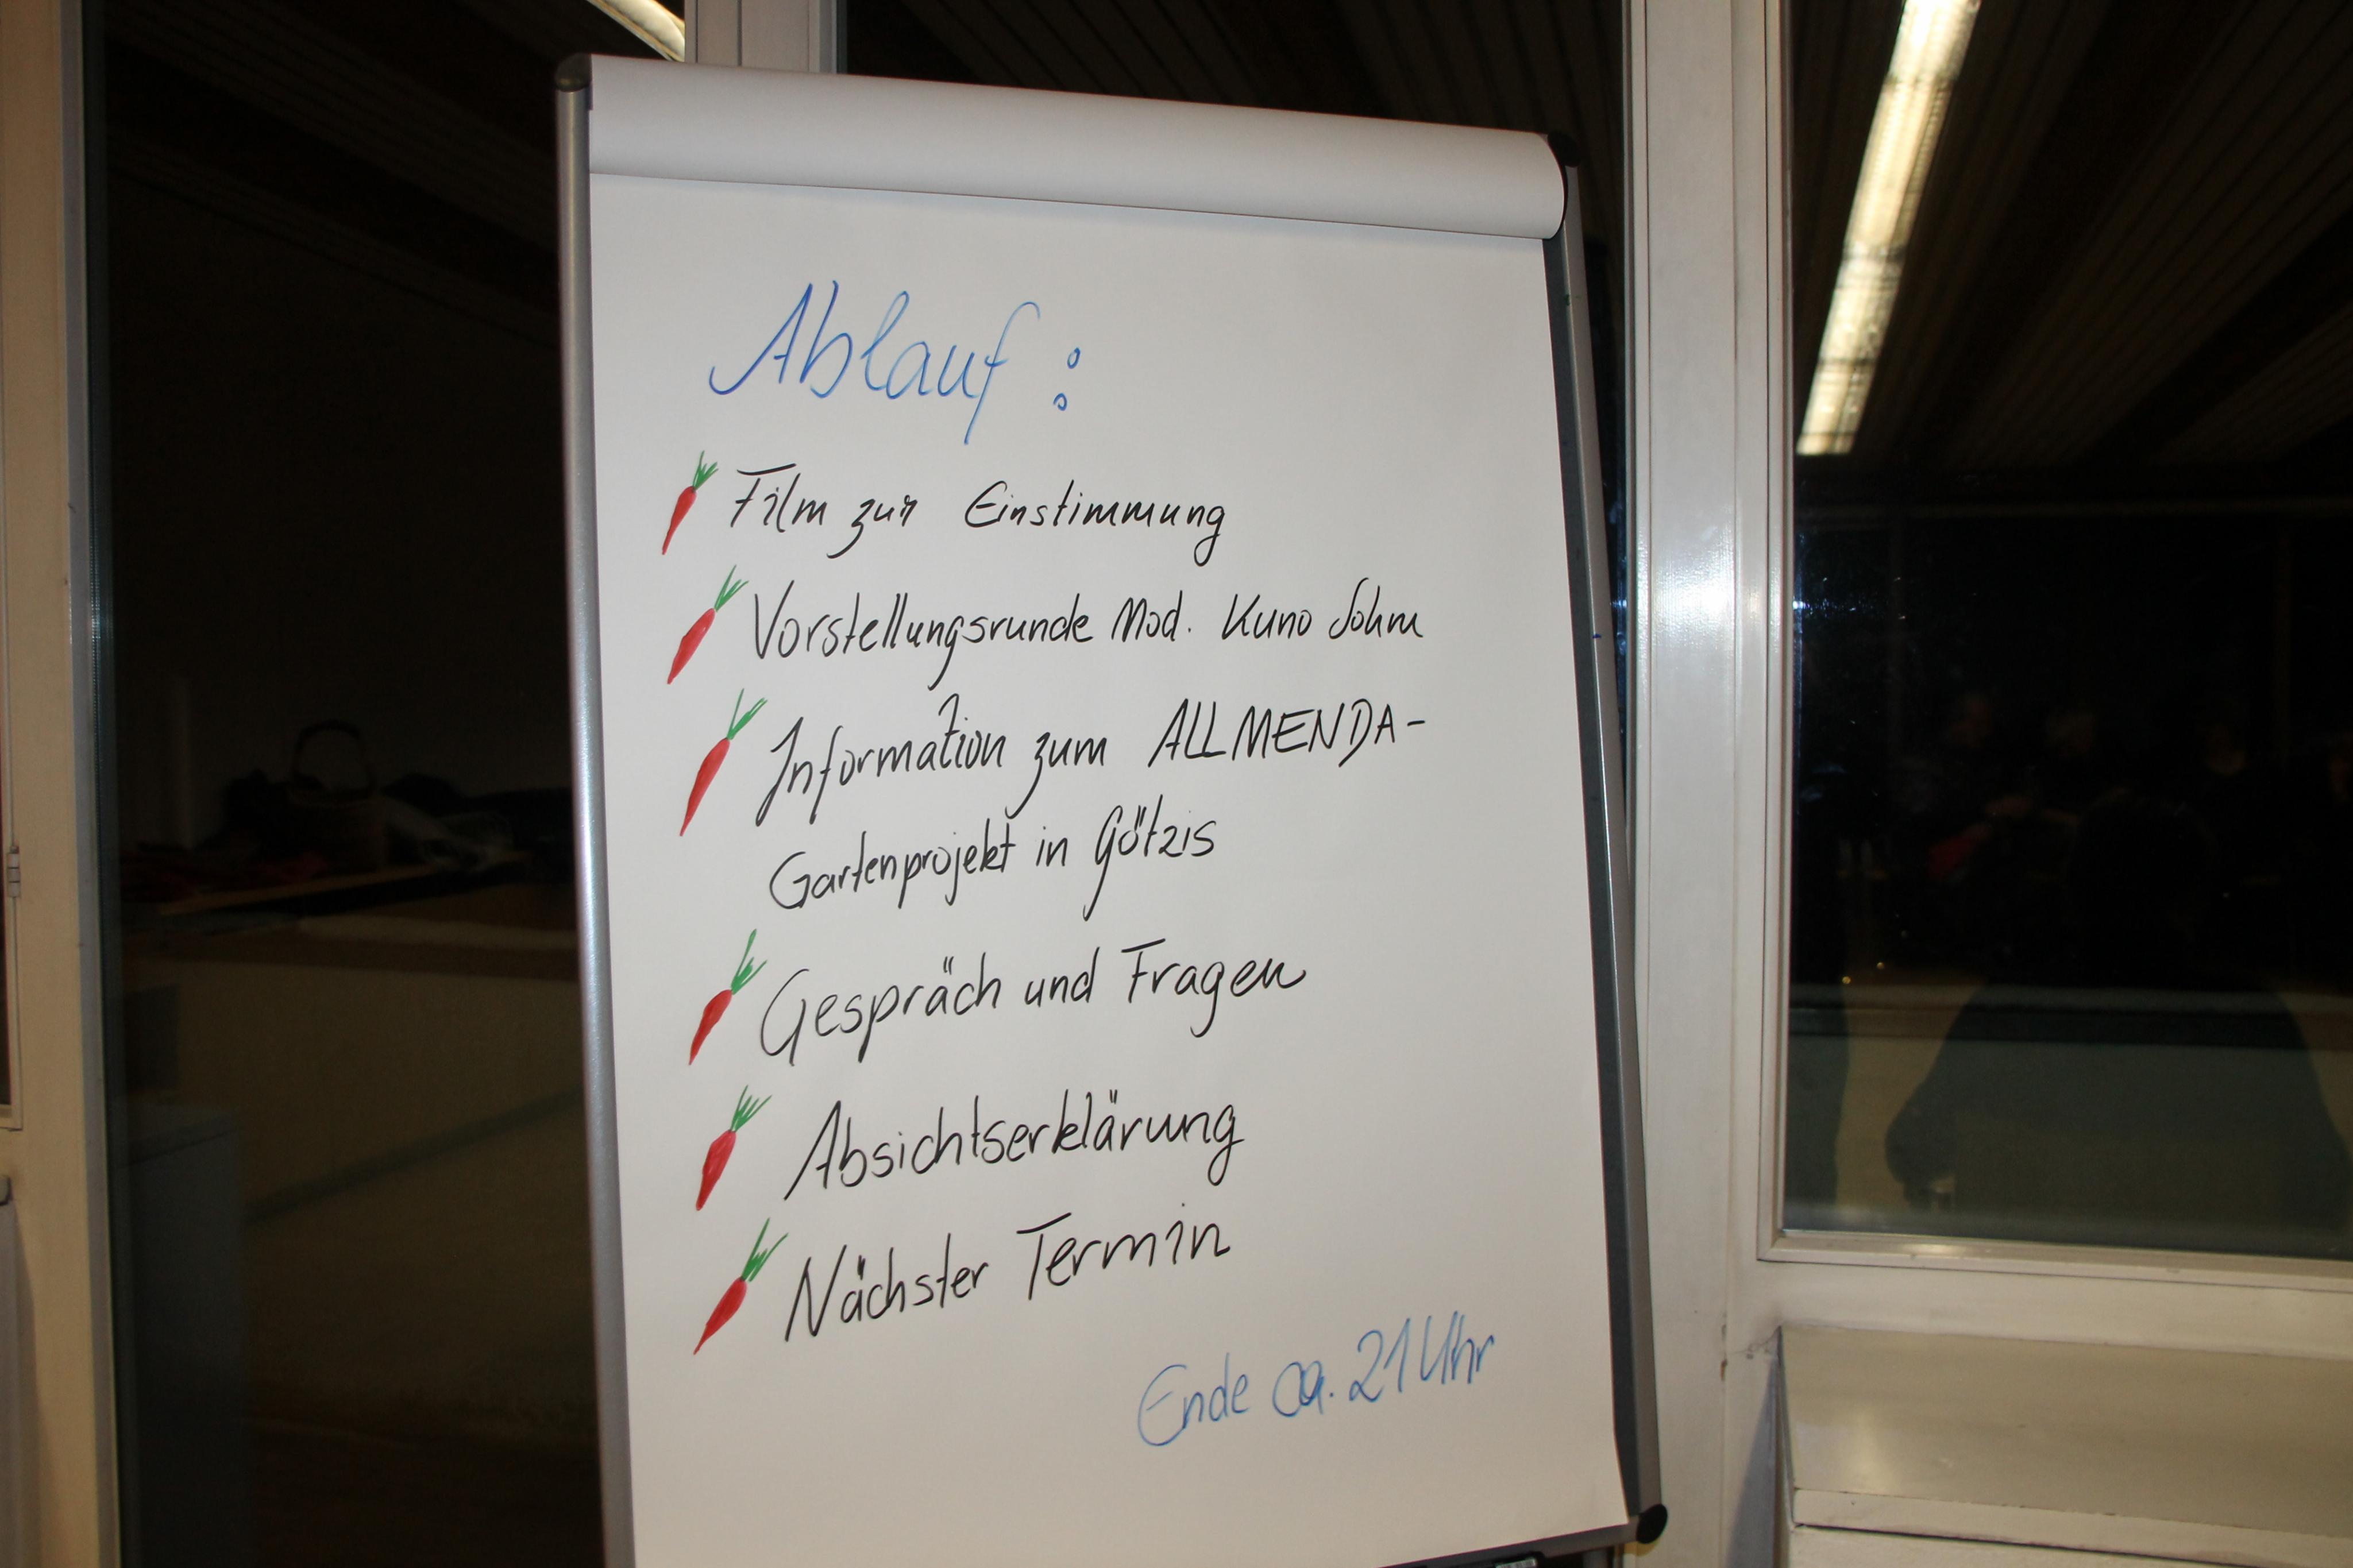 Ablauf :
Film zur Einstimmung
Vorstellungsrunde Mod. Kuno Sohm
Information zum ALLMENDA-
Gartenprojekt in Götzis
Gespräch und Fragen
Absichtserklärung
Nächster Termin
Ende ca. 21 Uhr